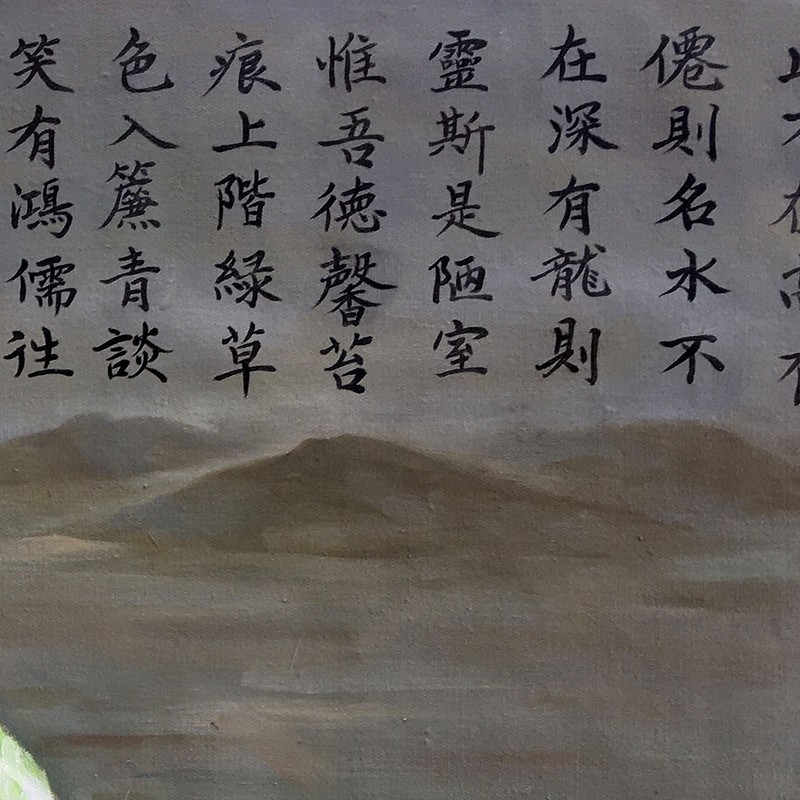 僊則名水不
在深有龍則
靈斯是陋室
惟吾徳馨苔
痕上階緑草
色入簾青談
笑有鴻儒徃